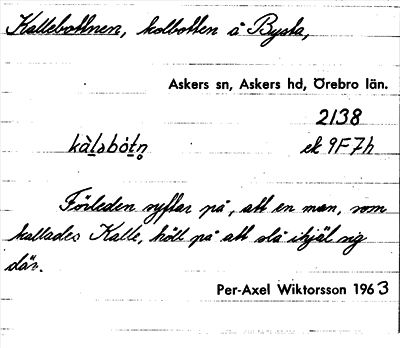 Kallebottnen, kolbotten å Bysta,
Askers sn, Askers hd, Örebro län.
2138
kàl̲əbót̲n̥ ek 9F7h
Förleden syftar på, att en man, som
kallades Kalle, höll på att slå ihjäl sig
där.
Per-Axel Wiktorsson 1963